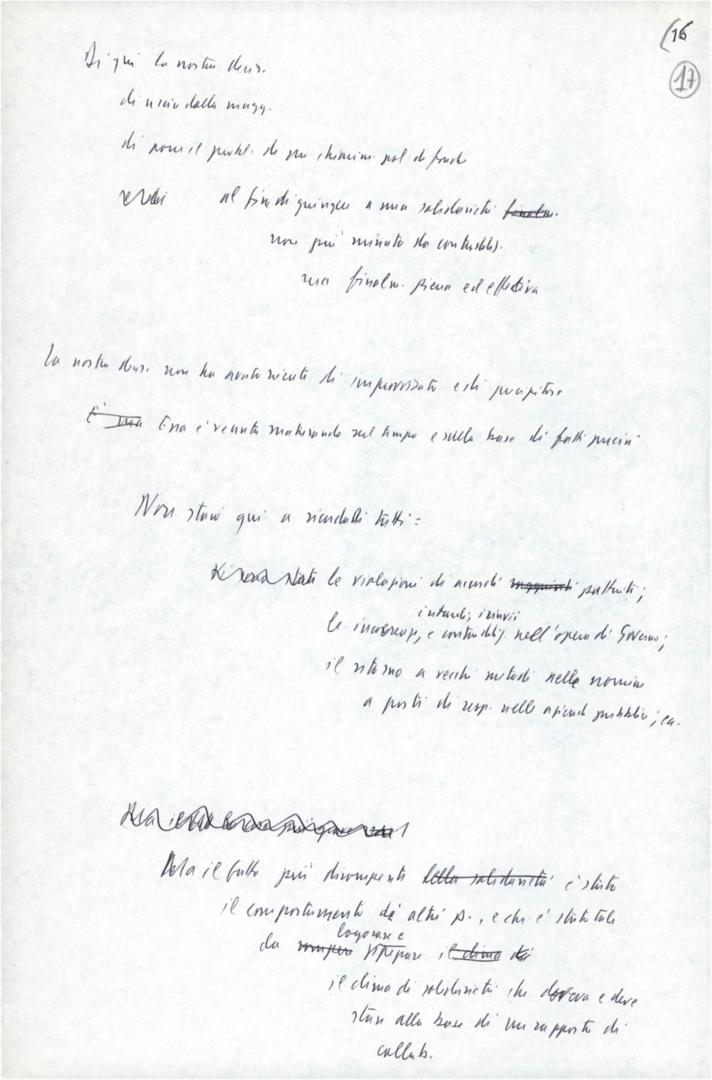 (16
17
Di qui la nostra decis.
di uscire dalla magg.
di porre il probl. di un chiarim. pol. di fondo
al fine di giungere a una solidarietà finalm.
non più minata da contraddiz.
ma finalm. piena ed effettiva
La nostra decis. non ha assolutamente di improvvisato e di precipitoso
È una Essa è venuta maturando nel tempo e sulla base di fatti precisi
Non starò qui a ricordarli tutti:
Vi sono state le violazioni di accordi pattuiti;
ritardi, rinvii
le incertezze, e contraddiz. nell'opera di Governo;
il ritorno a vecchi metodi nelle nomine
a posti di resp. nelle aziende pubbliche; ecc.
Ma il
Ma il fatto più dirompente della solidarietà è stato
il comportamento di altri p., e che è stato tale
logorare e
da rompere il clima di
il clima di solidarietà che doveva e deve
stare alla base di un rapporto di
collab.